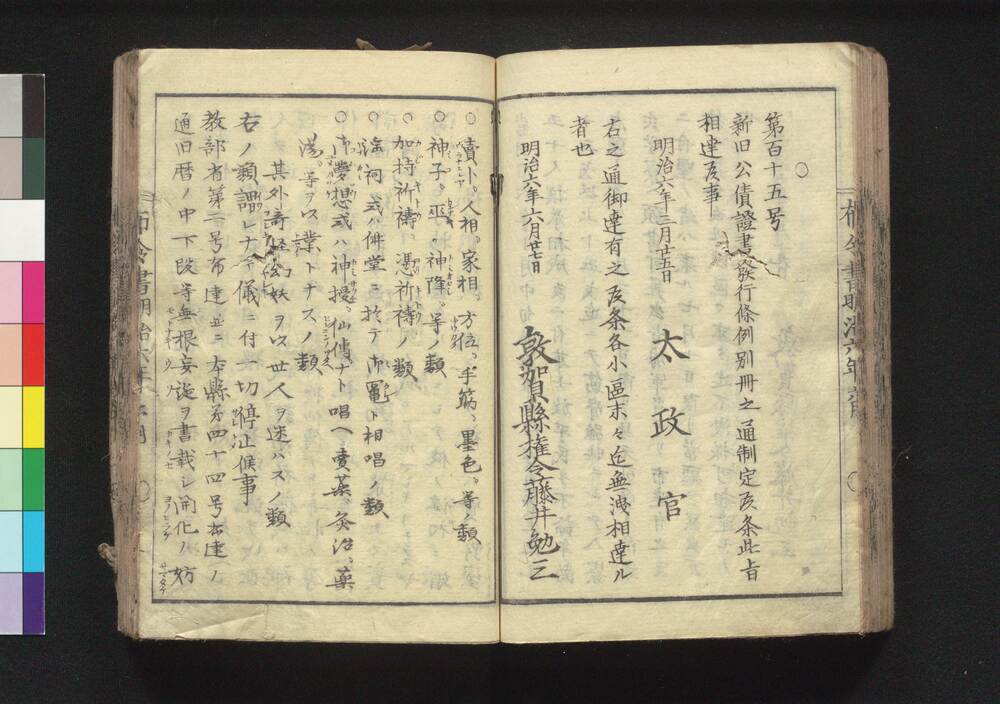 〇
第百十五号
新旧公債證書發行條例別冊之通制定候条此旨
相達候事
明治六年三月廿五日
太政官
右之通御達有之候条各小區末々迄無洩相達ル
者也
明治六年六月廿七日
敦賀縣権令藤井勉三
〇賣卜。人相。家相。方位。手筋。墨色。等ノ類
〇神子。巫。神降。等ノ類
〇加持祈禱。憑祈禱ノ類
〇淫祠或ハ俳堂ニ於テ御鬮ト相唱ノ類
〇御夢想或ハ神授。仙傳ナト唱ヘ賣薬。灸治。薬
湯。等ヲ以業トナスノ類
其外奇怪幻妖ヲ以世人ヲ迷ハスノ類
右ノ類謂レナキ儀ニ付一切停止候事
教部省第二号布達並ニ本縣第四十四号布達ノ
通旧暦ノ中下段等無根妄誕ヲ書載シ開化ノ妨
布令書明治六年